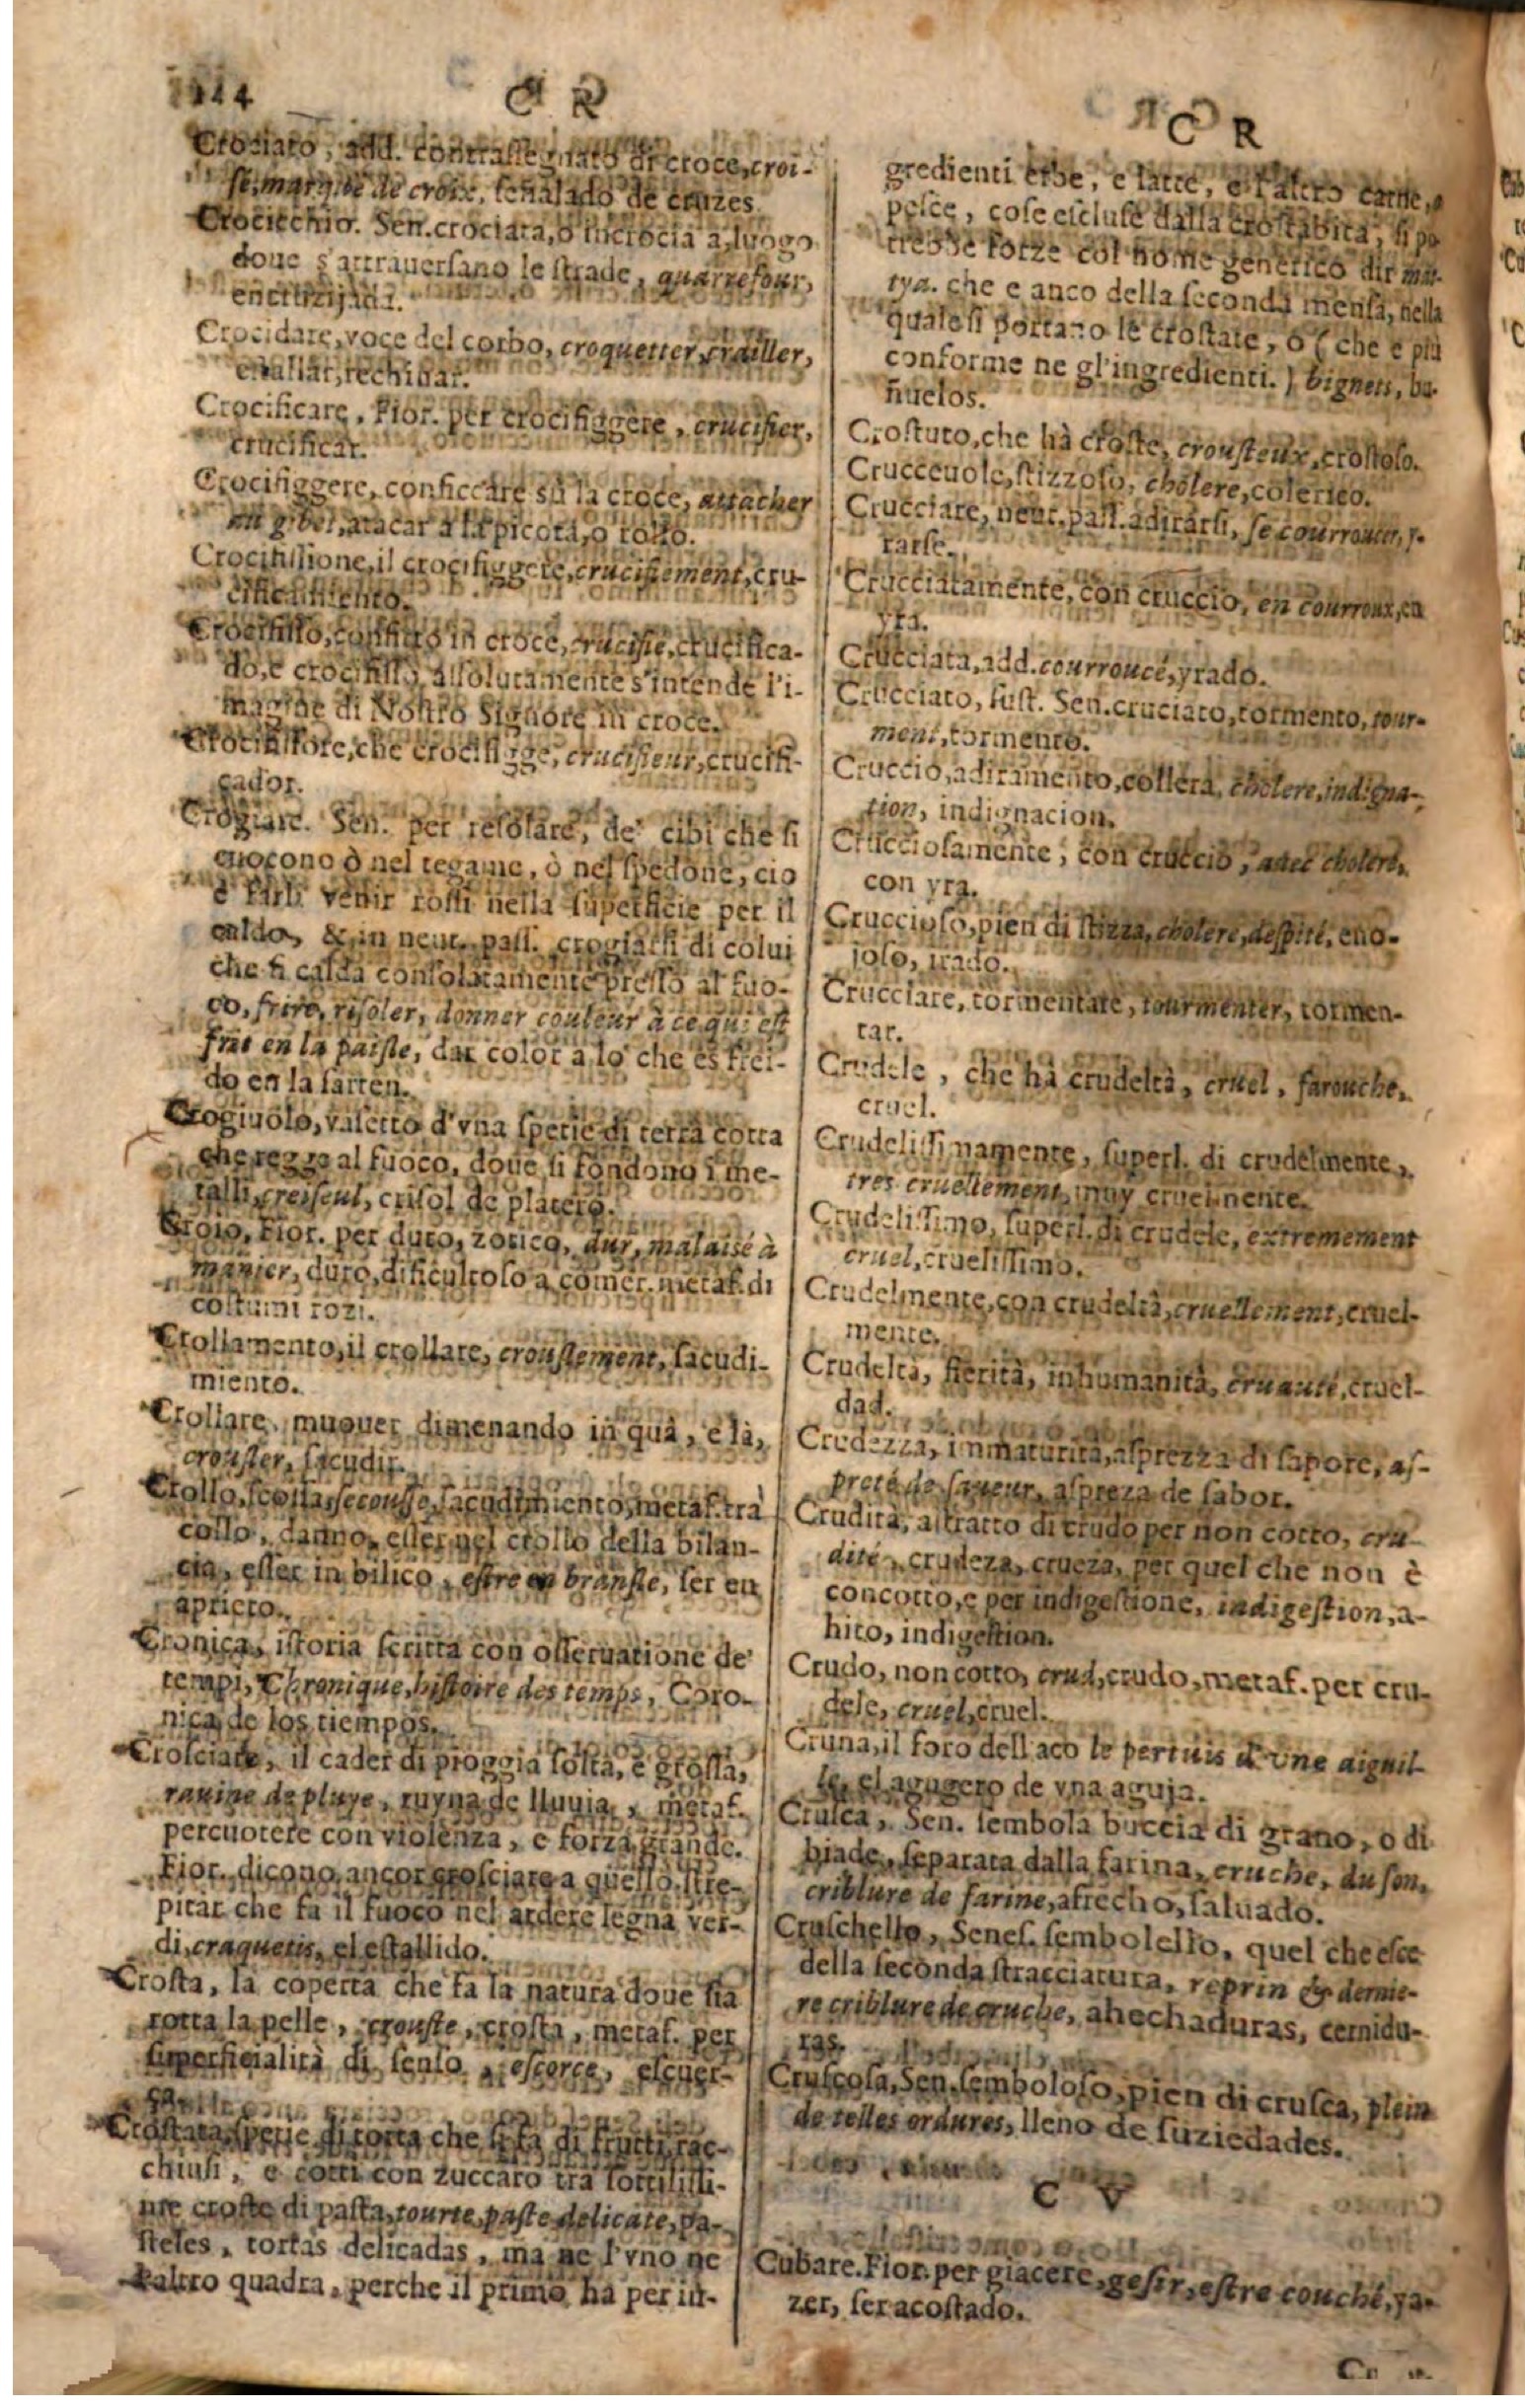 C R
Crociato, add. contrassegnato di croce, croi-
sé, marqué de croix, señalado de cruzes.
Crocicchio. Sen. crociata, o incrocia a, luogo
doue s'attrauersano le strade, quarrefour,
encruzijada.
Crocidare, voce del corbo, croquetter, crailler,
Crocificare, Fior. per crocifiggere, crucifier,
crucificar.
Crocifiggere, conficcare sù la croce, attacher
au gibet, atacar a la picota, o rollo.
Crocifissione, il crocifiggere, crucifiement, cru-
cificamiento.
Crocifisso, confitto in croce, crucifié, crucifica-
do, e crocifisso, assolutamente s'intende l'i-
magine di Nostro Signore in croce.
Crocifissore, che crocifigge, crucifieur, crucifi-
cador.
Crogiare. Sen. per resolare, de' cibi che si
cuocono ò nel tegame, ò nel spedone, cio
è farli venir rossi nella superficie per il
caldo, & in neut. pass. crogiarsi di colui
che si calda consolatamente presso al fuo-
co, frire, risoler, donner couleur à ce qui est
frit en la paisle, dar color a lo che es frei-
do en la sarten.
Crogiuolo, vasetto d'vna spetie di terra cotta
che regge al fuoco, doue si fondono i me-
talli, creiseul, crisol de platero.
Croio, Fior. per duro, zotico, dur, malaisé à
manier, duro, dificultoso a comer. metaf. di
costumi rozi.
Crollamento, il crollare, crouslement, sacudi-
miento.
Crollare, muouer dimenando in quà, e là,
crousler, sacudir.
Crollo, scossa, secousse, sacudimiento, metaf. trà
collo, danno, esser nel crollo della bilan-
cia, esser in bilico, estre en bransle, ser en
aprieto.
Cronica, istoria scritta con osseruatione de'
tempi, Chronique, histoire des temps, Coro-
nica de los tiempos.
Crosciare, il cader di pioggia folta, e grossa,
rauine de pluye, ruyna de lluuia, metaf.
percuotere con violenza, e forza grande.
Fior. dicono ancor crosciare a quello stre-
pitar che fa il fuoco nel ardere legna ver-
di, craquetis, el estallido.
Crosta, la coperta che fa la natura doue sia
rotta la pelle, crouste, crosta, metaf. per
superficialità di senso, escorce, escuer-
ça.
Crostata, spetie di torta che si fa di frutti, rac-
chiusi, e cotti con zuccaro tra sottilissi-
me croste di pasta, tourte, paste delicate, pa-
steles, tortas delicadas, ma ne l'vno ne
l'altro quadra, perche il primo ha per in-
C R
gredienti erbe, e latte, e l'altro carne, o
pesce, cose escluse dalla crostabita, si po
trebbe forze col nome generico dir
tya. che e anco della seconda mensa, nella
quale si portano le crostate, o (che e più
conforme ne gl'ingredienti.) bignets, bu-
ñuelos.
Crostuto, che hà croste, crousteux, crostoso.
Crucceuole, stizzoso, cholere, colerico.
Crucciare, neut. pass. adirarsi, se courroucer, y-
rarse.
Crucciatamente, con cruccio, en courroux, en
yra.
Crucciata, add. courroucé, yrado.
Crucciato, sust. Sen. cruciato, tormento, tour-
ment, tormento.
Cruccio, adiramento, collera, cholere, indigna-
tion, indignacion.
Crucciosamente, con cruccio, auec cholere,
con yra.
Cruccioso, pien di stizza, cholere, despité, eno-
joso, irado.
Crucciare, tormentare, tourmenter, tormen-
tar.
Crudele, che hà crudeltà, cruel, farouche,
cruel.
Crudelissimamente, superl. di crudelmente,
tres cruellement, muy cruelmente.
Crudelissimo, superl. di crudele, extremement
cruel, cruelissimo.
Crudelmente, con crudeltà, cruellement, cruel-
mente.
Crudeltà, fierità, inhumanità, cruauté, cruel-
dad.
Crudezza, immaturità, asprezza di sapore, as-
preté de saueur, aspreza de sabor.
Crudità, astratto di crudo per non cotto, cru-
dité, crudeza, crueza, per quel che non è
concotto, e per indigestione, indigestion, a-
hito, indigestion.
Crudo, non cotto, crud, crudo, metaf. per cru-
dele, cruel, cruel.
Cruna, il foro dell aco le pertuis d'vne aiguil-
le, el agugero de vna aguja.
Crusca, Sen. sembola buccia di grano, o di
biade, separata dalla farina, cruche, du son,
criblure de farine, afrecho, saluado.
Cruschello, Senes. sembolello, quel che esce
della seconda stracciatura, reprin & dernie-
re criblure de cruche, ahechaduras, cernidu-
ras.
Cruscosa, Sen. semboloso, pien di crusca, plein
de telles ordures, lleno de suziedades.
C V
Cubare. Fior. per giacere, gesir, estre couché, ya-
zer, ser acostado.